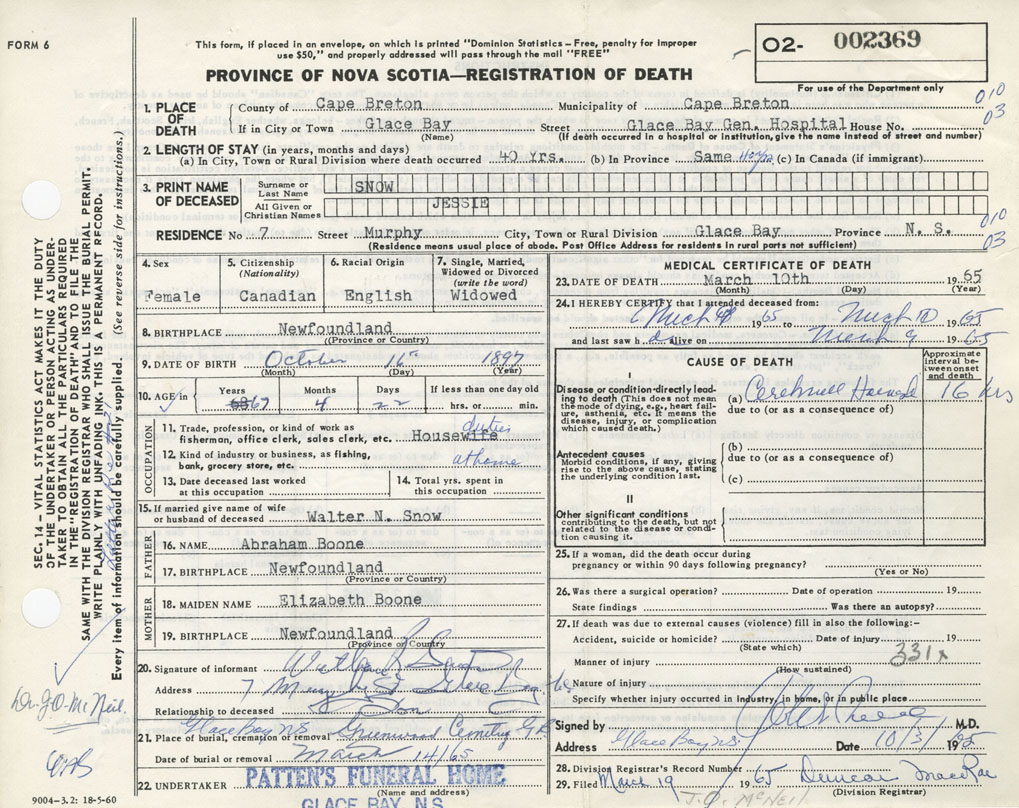 FORM 6
This form, if placed in an envelope, on which is printed "Dominion Statistics – Free, penalty for improper
use $50," and properly addressed will pass through the mail "FREE"
O2- 002369
For use of the Department only
PROVINCE OF NOVA SCOTIA—REGISTRATION OF DEATH
010
03
1. PLACE OF DEATH
County of Cape Breton Municipality of Cape Breton
If in City or Town Glace Bay Street Glace Bay Gen. Hospital House No.
(Name) (If death occurred in a hospital or institution, give the name instead of street and number)
2. LENGTH OF STAY (in years, months and days)
(a) In City, Town or Rural Division where death occurred 40 Yrs. (b) In Province Same (c) In Canada (if immigrant)
3. PRINT NAME OF DECEASED
Surname or Last Name SNOW
All Given or Christian Names JESSIE
010
03
RESIDENCE No 7 Street Murphy City, Town or Rural Division Glace Bay Province N. S.
(Residence means usual place of abode. Post Office Address for residents in rural parts not sufficient)
4. Sex
Female
5. Citizenship
(Nationality)
Canadian
6. Racial Origin
English
7. Single, Married,
Widowed or Divorced
(write the word)
Widowed
8. BIRTHPLACE Newfoundland
(Province or Country)
9. DATE OF BIRTH October 16th 1897
(Month) (Day) (Year)
10. AGE in
Years 67
Months 4
Days 22
If less than one day old
hrs. or min.
OCCUPATION
11. Trade, profession, or kind of work as
fisherman, office clerk, sales clerk, etc. Housewife duties
12. Kind of industry or business, as fishing,
bank, grocery store, etc. at home
13. Date deceased last worked
at this occupation
14. Total yrs. spent in
this occupation
15. If married give name of wife
or husband of deceased Walter N. Snow
FATHER
16. NAME Abraham Boone
17. BIRTHPLACE Newfoundland
(Province or Country)
MOTHER
18. MAIDEN NAME Elizabeth Boone
19. BIRTHPLACE Newfoundland
(Province or Country)
20. Signature of informant
Address 7 Murphy St Glace Bay
Relationship to deceased Son
21. Place of burial, cremation or removal Glace Bay NS Greenwood Cemetery G.B.
Date of burial or removal March 14/65
22. UNDERTAKER PATTEN'S FUNERAL HOME
(Name and address)
GLACE BAY, N.S.
MEDICAL CERTIFICATE OF DEATH
23. DATE OF DEATH March 10th 1965
(Month) (Day) (Year)
24. I HEREBY CERTIFY that I attended deceased from:
1965 to March 10 1965
and last saw h alive on March 9 1965
CAUSE OF DEATH
Approximate interval between onset and death
I
Disease or condition directly leading to death (This does not
mean the mode of dying, e.g., heart failure, asthenia, etc. It means the
disease, injury, or complication
which caused death.)
(a) Cerebral
16 hrs
due to (or as a consequence of)
Antecedent causes
Morbid conditions, if any, giving
rise to the above cause, stating
the underlying condition last.
(b)
due to (or as a consequence of)
(c)
II
Other significant conditions
contributing to the death, but not
related to the disease or condition
causing it.
25. If a woman, did the death occur during
pregnancy or within 90 days following pregnancy?
(Yes or No)
26. Was there a surgical operation? Date of operation 19
State findings Was there an autopsy?
27. If death was due to external causes (violence) fill in also the following:–
Accident, suicide or homicide? Date of injury 19
(State which)
331x
Manner of injury
(How sustained)
Nature of injury
Specify whether injury occurred in industry, in home, or in public place
Signed by M.D.
Address Glace Bay NS Date 10/3/ 1965
28. Division Registrar's Record Number
29. Filed March 19 1965 Duncan MacRae
(Division Registrar)
J.O. McNEIL
SEC. 14 – VITAL STATISTICS ACT MAKES IT THE DUTY
OF THE UNDERTAKER OR PERSON ACTING AS UNDER-
TAKER TO OBTAIN ALL THE PARTICULARS REQUIRED
IN THE "REGISTRATION OF DEATH" AND TO FILE THE
SAME WITH THE DIVISION REGISTRAR WHO SHALL ISSUE THE BURIAL PERMIT.
WRITE PLAINLY WITH UNFADING INK. THIS IS A PERMANENT RECORD.
Every item of information should be carefully supplied. (See reverse side for instructions.)
Dr. J.O. McNeil
9004-3.2: 18-5-60